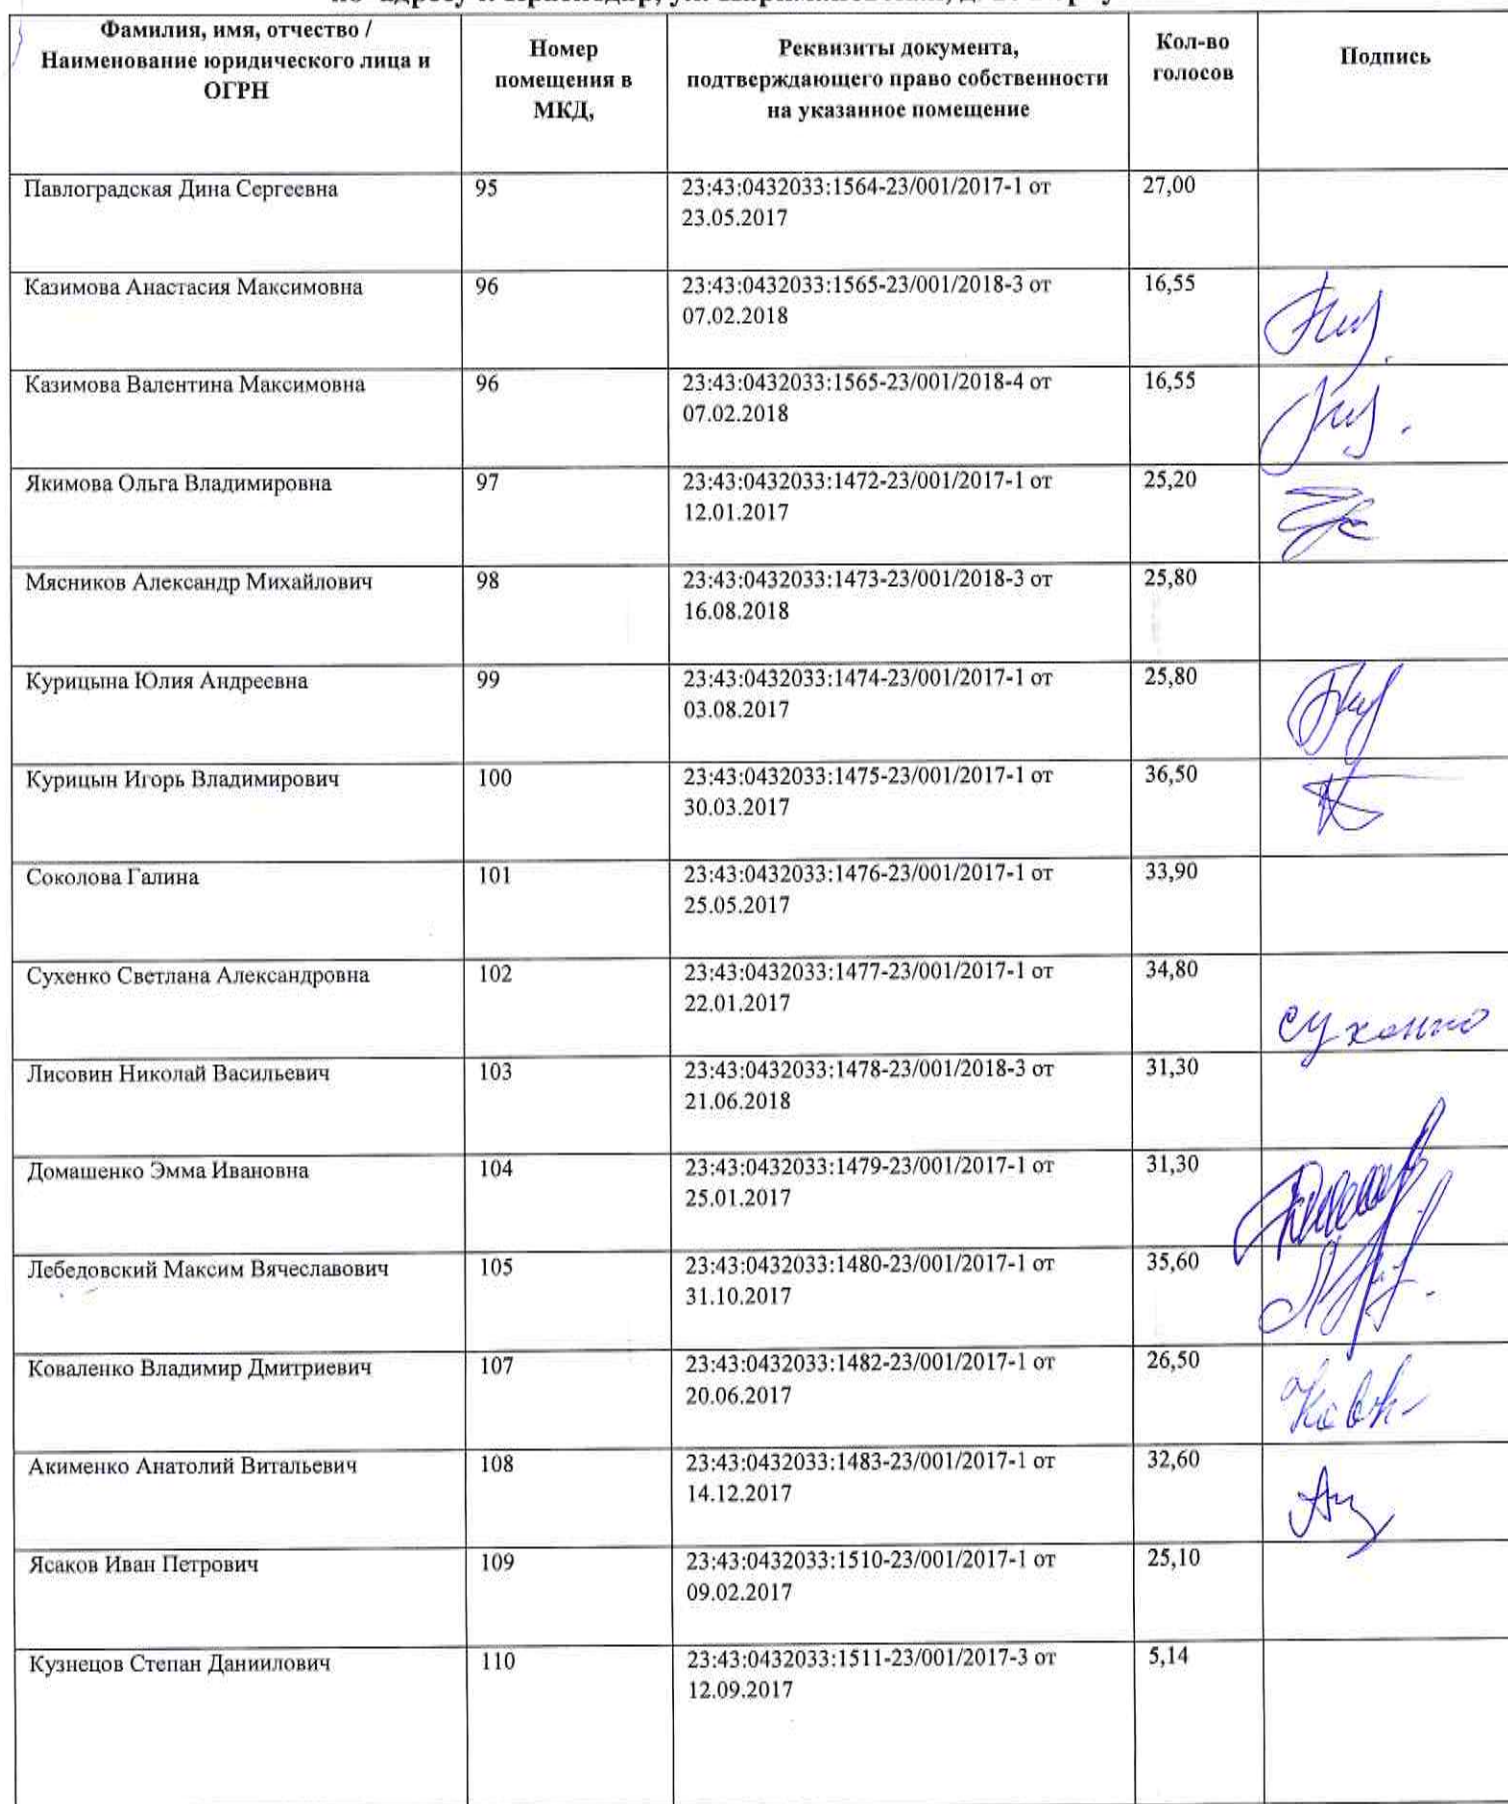 Фамилия, имя, отчество /
Наименование юридического лица и
ОГРН
Номер
помещения в
МКД,
Реквизиты документа,
подтверждающего право собственности
на указанное помещение
Кол-во
голосов
Подпись
Павлоградская Дина Сергеевна
95
23:43:0432033:1564-23/001/2017-1 от
23.05.2017
27,00
Казимова Анастасия Максимовна
96
23:43:0432033:1565-23/001/2018-3 от
07.02.2018
16,55
Казимова Валентина Максимовна
96
23:43:0432033:1565-23/001/2018-4 от
07.02.2018
16,55
Якимова Ольга Владимировна
97
23:43:0432033:1472-23/001/2017-1 от
12.01.2017
25,20
Мясников Александр Михайлович
98
23:43:0432033:1473-23/001/2018-3 от
16.08.2018
25,80
Курицына Юлия Андреевна
99
23:43:0432033:1474-23/001/2017-1 от
03.08.2017
25,80
Курицын Игорь Владимирович
100
23:43:0432033:1475-23/001/2017-1 от
30.03.2017
36,50
Соколова Галина
101
23:43:0432033:1476-23/001/2017-1 от
25.05.2017
33,90
Сухенко Светлана Александровна
102
23:43:0432033:1477-23/001/2017-1 от
22.01.2017
34,80
Сухенко
Лисовин Николай Васильевич
103
23:43:0432033:1478-23/001/2018-3 от
21.06.2018
31,30
Домашенко Эмма Ивановна
104
23:43:0432033:1479-23/001/2017-1 от
25.01.2017
31,30
Лебедовский Максим Вячеславович
105
23:43:0432033:1480-23/001/2017-1 от
31.10.2017
35,60
Коваленко Владимир Дмитриевич
107
23:43:0432033:1482-23/001/2017-1 от
20.06.2017
26,50
Акименко Анатолий Витальевич
108
23:43:0432033:1483-23/001/2017-1 от
14.12.2017
32,60
Ясаков Иван Петрович
109
23:43:0432033:1510-23/001/2017-1 от
09.02.2017
25,10
Кузнецов Степан Даниилович
110
23:43:0432033:1511-23/001/2017-3 от
12.09.2017
5,14